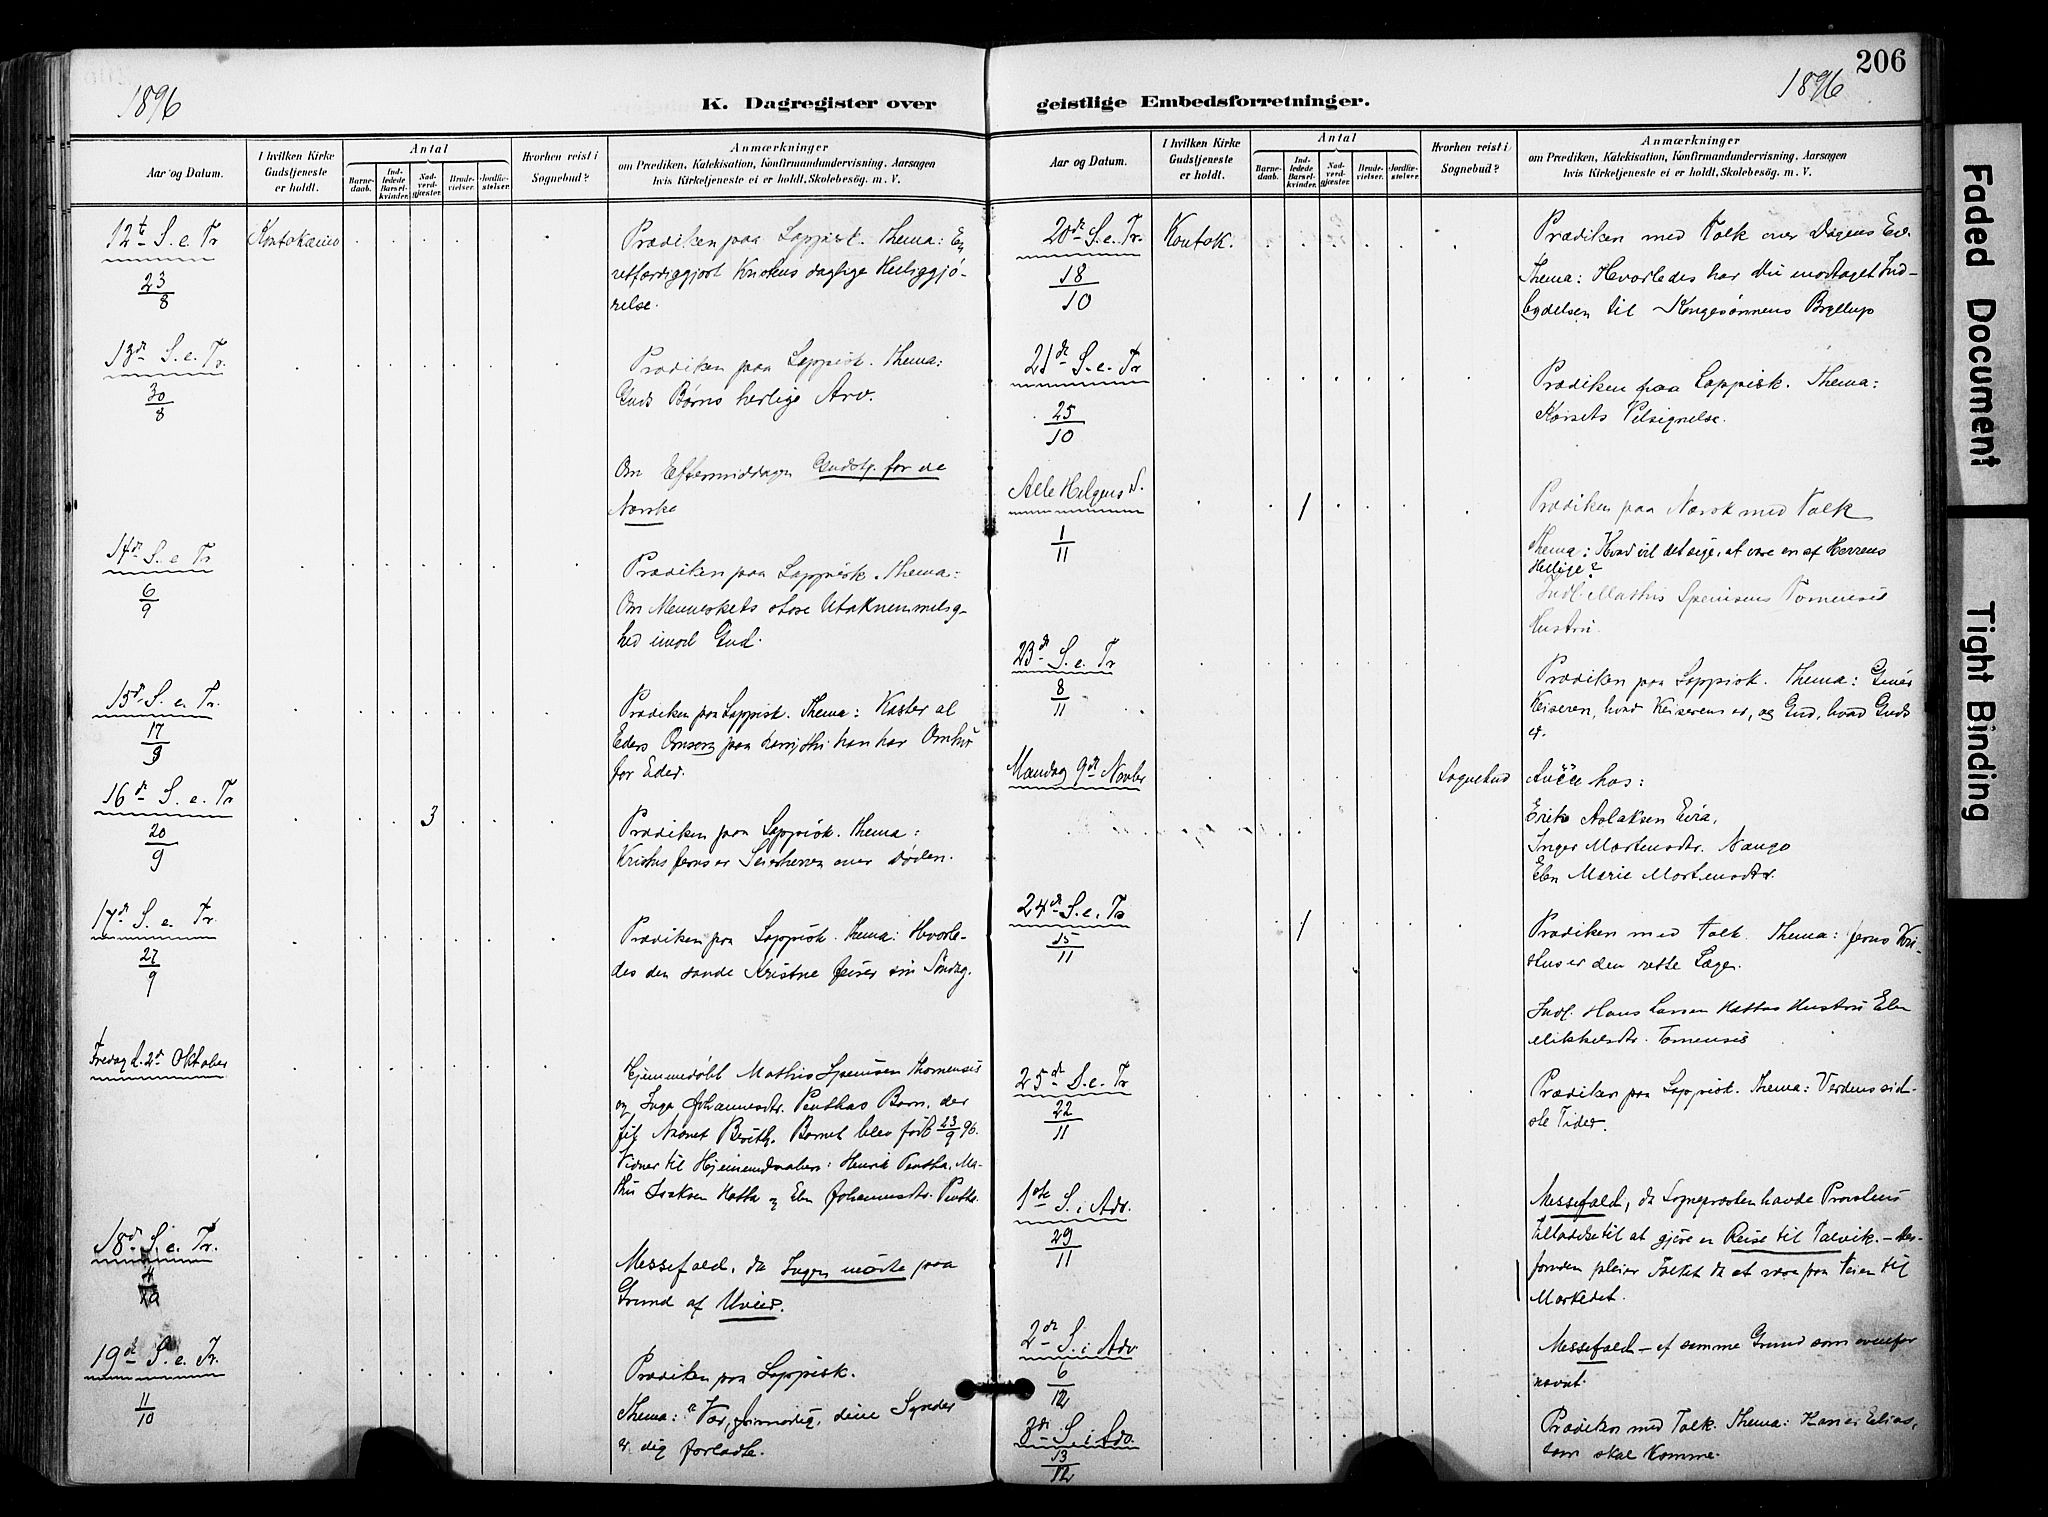 206
1896
1896
K. Dagregister over
geistlige Embedsforretninger.
Aar og Datum.
I hvilken Kirke
Gudstjeneste
er holdt.
Antal
Barne-
daab.
Ind-
ledede
Barsel-
kvinder.
Nad-
verd-
gjæster.
Brude-
vielser.
Jordfæ-
stelser.
Hvorhen reist i
Sognebud?
Anmærkninger
om Prædiken, Katekisation, Konfirmandundervisning, Aarsagen
hvis Kirketjeneste ei er holdt, Skolebesøg. m. V.
12te S. e. Tr
23/8
Kautokeino
Prædiken paa Lappisk. Thema: En
retfærdiggjort Kristens daglige Helliggjø-
relse.
13de S. e. Tr.
30/8
Prædiken paa Lappisk. Thema:
Guds Børns herlige Arv.
Om Eftermiddagen Gudstj. for de
Norske
14de S. e Tr
6/9
Prædiken paa Lappisk. Thema:
Om Menneskets store Utaknemmelig-
hed imod Gud.
15de S. e Tr.
Prædiken paa Lappisk. Thema: Kaster al
Eders Omsorg paa ham, thi han har Omhu
for Eder.
16de S. e. Tr
20/9
3
Prædiken paa Lappisk. Thema:
Kristus Jesus er Seierherren over Døden.
17de S. e Tr.
27/9
Prædiken paa Lappisk. Thema: Hvorle-
des den sande Kristne feirer sin Søndag.
Fredag d. 2de Oktober
Hjemmedøbt Mathis Spensen Thomensis
og Inga Johannesdtr. Penthas Barn, der
fik Navnet Berith. Barnet blev født 23/9 96.
Vidner til Hjemmedaaben: Henrik Pentha, Ma-
this Isaksen Hætta og Elen Johannesdtr. Pentha.
18de S. e. Tr.
Messefald, da Ingen mødte paa
Grund af Uveir.
19de S. e. Tr.
11/10
Prædiken paa Lappisk.
Thema: "Vær frimodig, dine Synder
er dig forladte.
Aar og Datum.
I hvilken Kirke
Gudstjeneste
er holdt.
Antal
Barne-
daab.
Ind-
ledede
Barsel-
kvinder.
Nad-
verd-
gjæster.
Brude-
vielser.
Jordfæ-
stelser.
Hvorhen reist i
Sognebud?
Anmærkninger
om Prædiken, Katekisation, Konfirmandundervisning, Aarsagen
hvis Kirketjeneste ei er holdt, Skolebesøg. m. V.
20de S. e. Tr.
18/10
Kautok.
Prædiken med Tolk over Dagens Ev.
Thema: Hvorledes har Du modtaget Ind-
bydelsen til Kongesønnens Bryllup
21de S. e. Tr
25/10
Prædiken paa Lappisk. Thema:
Korsets Velsignelse.
Alle Helgens D.
1/11
1
Prædiken paa Norsk med Tolk
Thema: Hvad vil det sige, at være en af Herrens
Hellige?
Indl. Mathis Spensens Tomensis
Hustru.
23de S. e. Tr
8/11
Prædiken paa Lappisk. Thema: Giver
Keiseren, hvad Keiserens er, og Gud, hvad Guds
er.
Mandag 9de Novbr
Sognebud
hos:
Erik Aslaksen Eira,
Inger Mortensdtr. Nango
Elen Marie Mortensdtr.
24de S. e. Tr
15/11
1
Prædiken med Tolk. Thema: Jesus Kri-
stus er den rette Læge.
Indl. Hans Larsen Hættas Hustru Elen
Mikkelsdtr. Tomensis
25de S. e. Tr
22/11
Prædiken paa Lappisk. Thema: Verdens sid-
ste Tider.
1ste S. i Adv.
29/11
Messefald, da Sognepresten havde Provstens
Tilladelse til at gjøre en Reise til Talvik. – Des-
foruden pleier Folket da at være paa Veien til
Markedet.
2den S. i Adv
6/12
Messefald – af samme Grund som ovenfor
nævnt.
3die S. i Adv.
13/12
Prædiken med Tolk. Thema: Han er Elias,
som skal komme.
Faded Document
Tight Binding